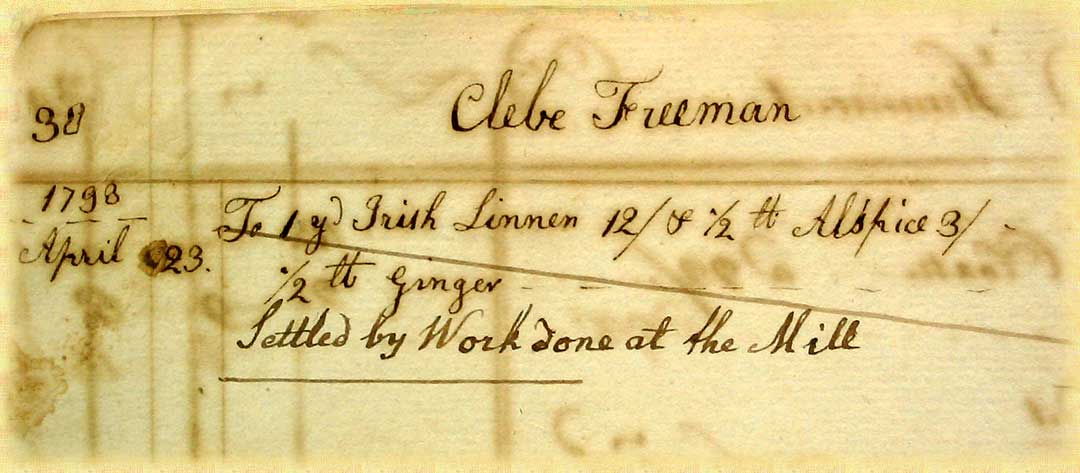 38
Clebe Freeman
1798
April 23.
To 1 yd Irish Linnen 12/ & 1/2 tt Alspice 3/
1/2 tt Ginger
Settled by Work done at the Mill